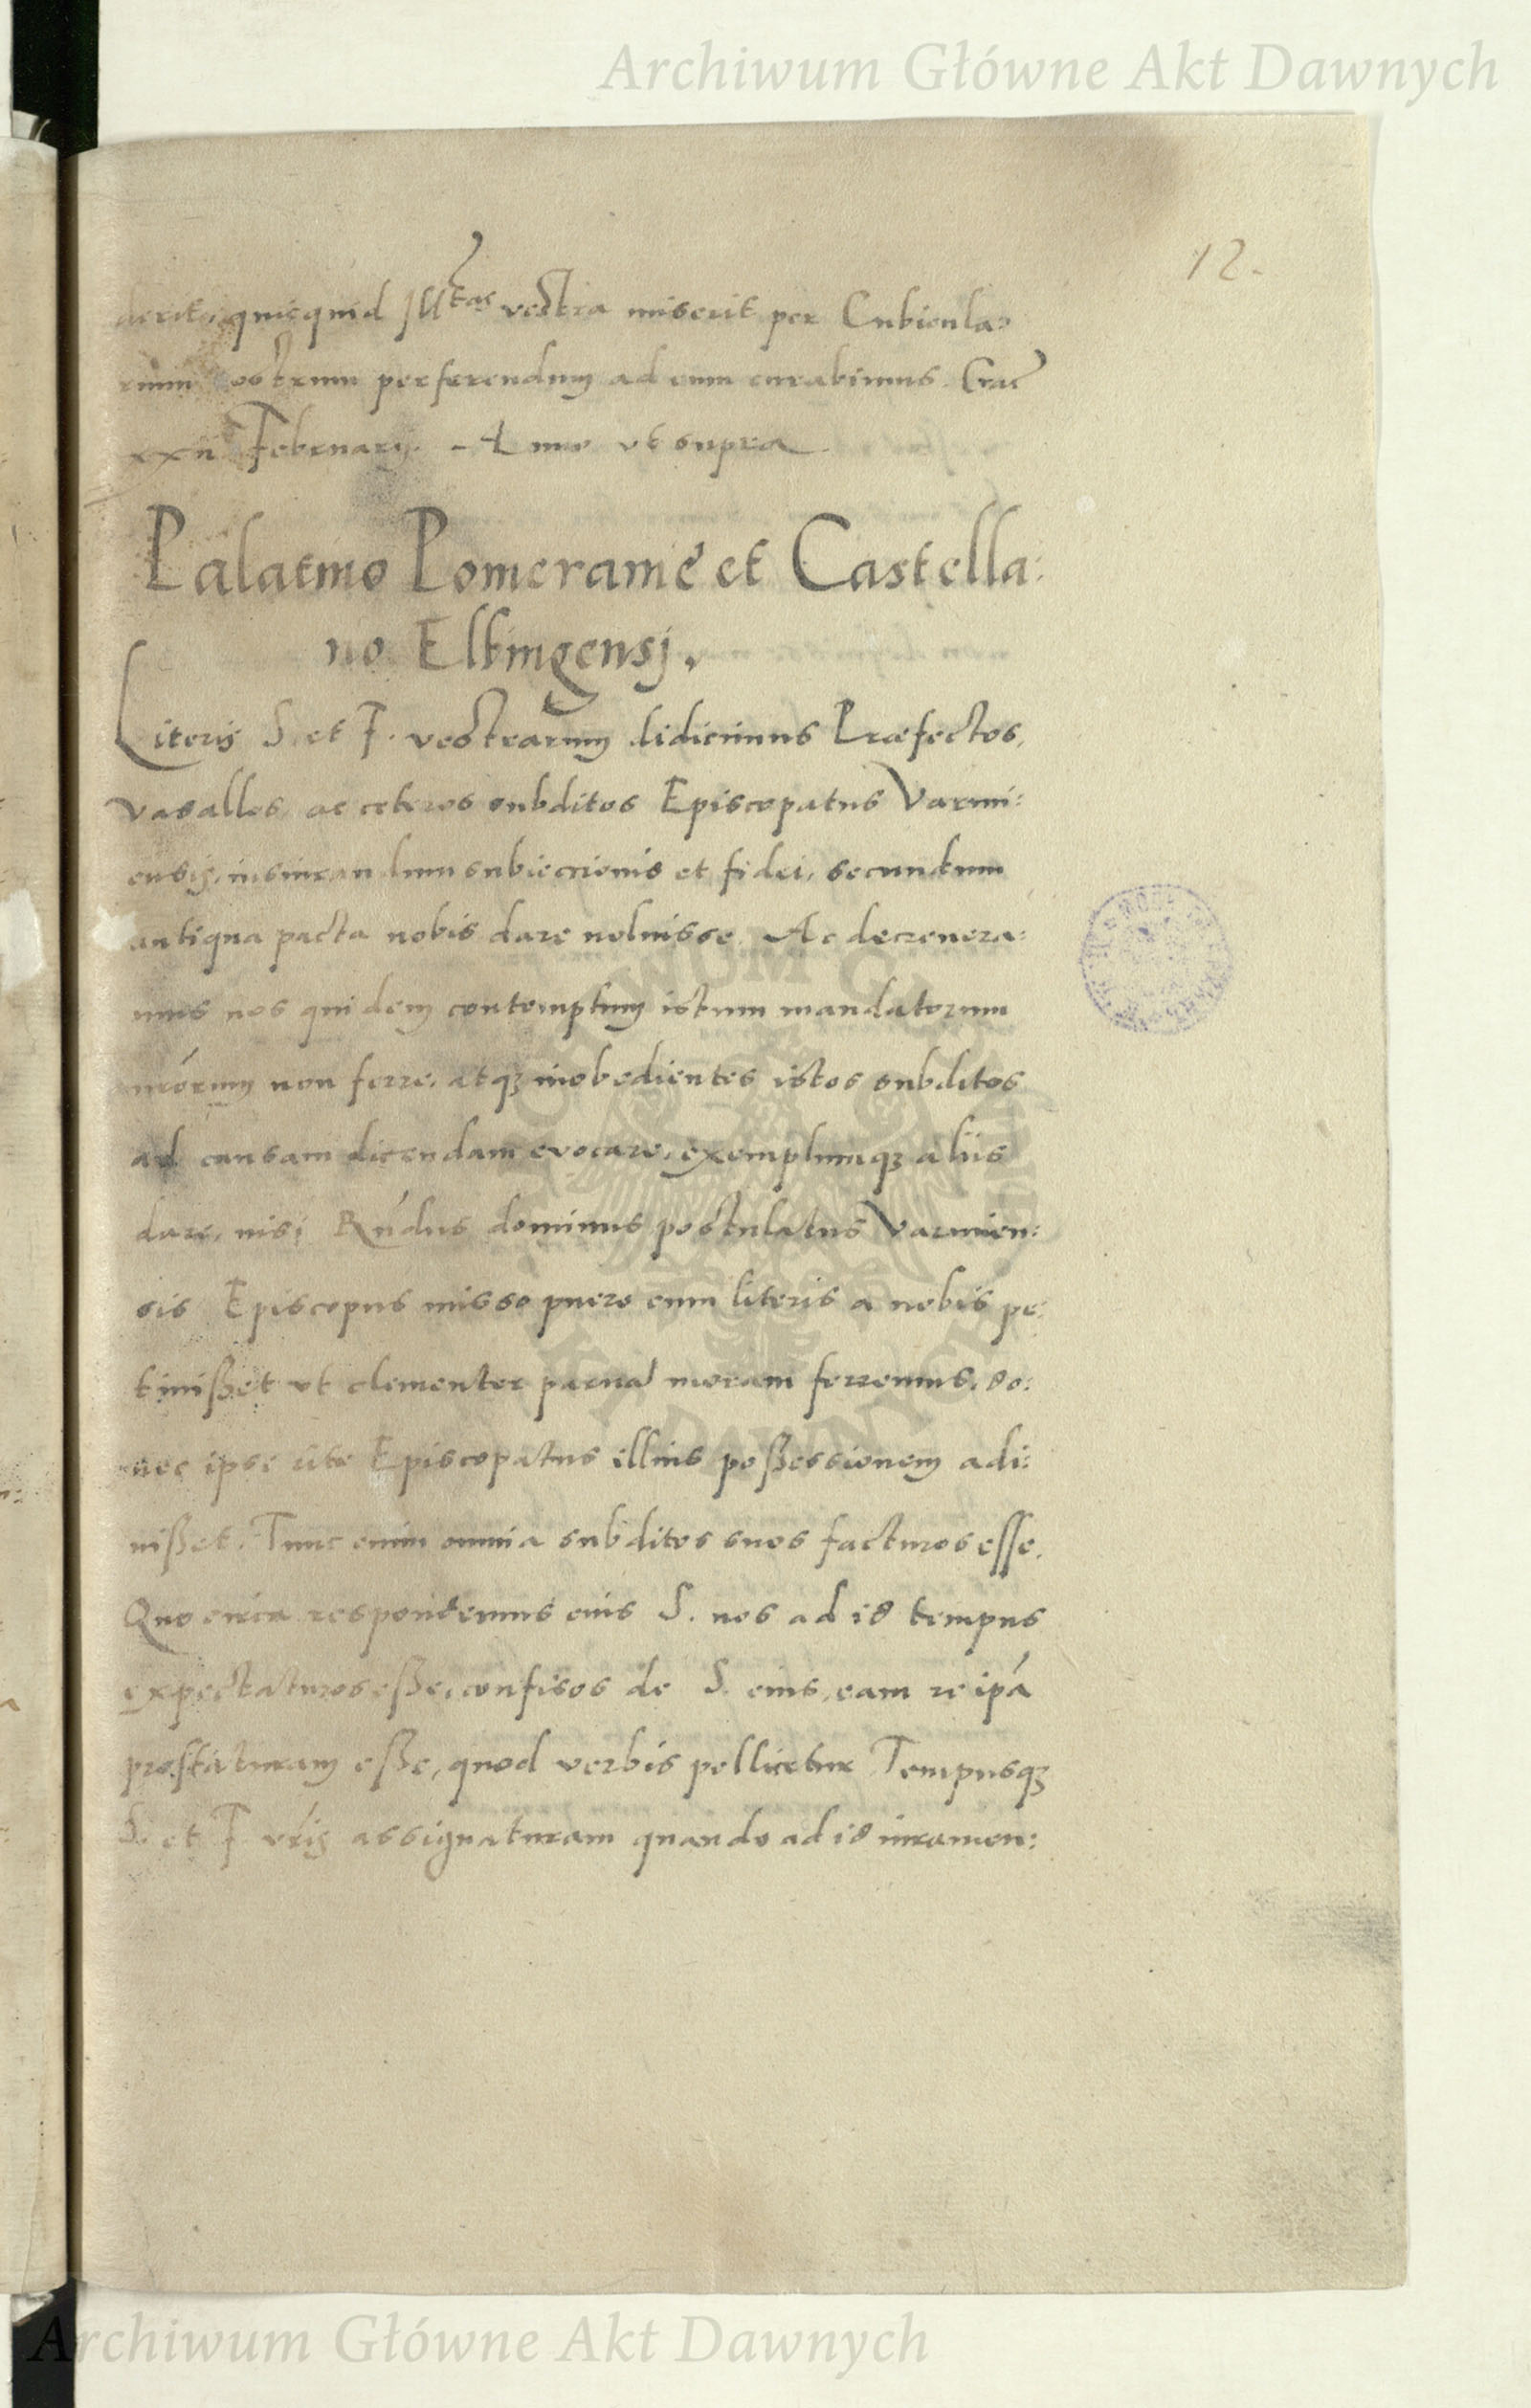 Archiwum Główne Akt Dawnych
12.
derit, quicquid Ill^tas vestra miserit per Cubicula:
rium nostrum perferendum ad eum curabimus. Crac
xxii Februarij. Anno ut supra.
Palatino Pomeranie et Castella:
no Elbingensj.
Literis S. et F. vestrarum didicimus Præfectos,
vasallos, ac ceteros subditos Episcopatus Varmi:
ensis, iusiurandum subiectionis et fidei, secundum
antiqua pacta nobis dare noluisse. Ac decrevera:
mus nos quidem contemptum istum mandatorum
nrorum non ferre, atq₃ inobedientes istos subditos
ad causam dicendam evocare, exemplumq₃ aliis
dare, nisi Rndus dominus postulatus Varmien:
sis Episcopus misso puero cum literis a nobis pe:
tiuißet ut clementer parua moram ferremus, do:
nec ipse Episcopatus illius poßessionem adi:
uißet. Tunc enim omnia subditos suos facturos esse.
Quo circa respondemus eius S. nos ad id tempus
expectaturos eße, confisos de S. eius, eam re ipá
prestaturam eße, quod verbis pollicetur Tempusq₃
S. et F. vris assignaturam quando ad id iuramen:
ARCHIWUM GŁÓWNE AKT DAWNYCH
Archiwum Główne Akt Dawnych